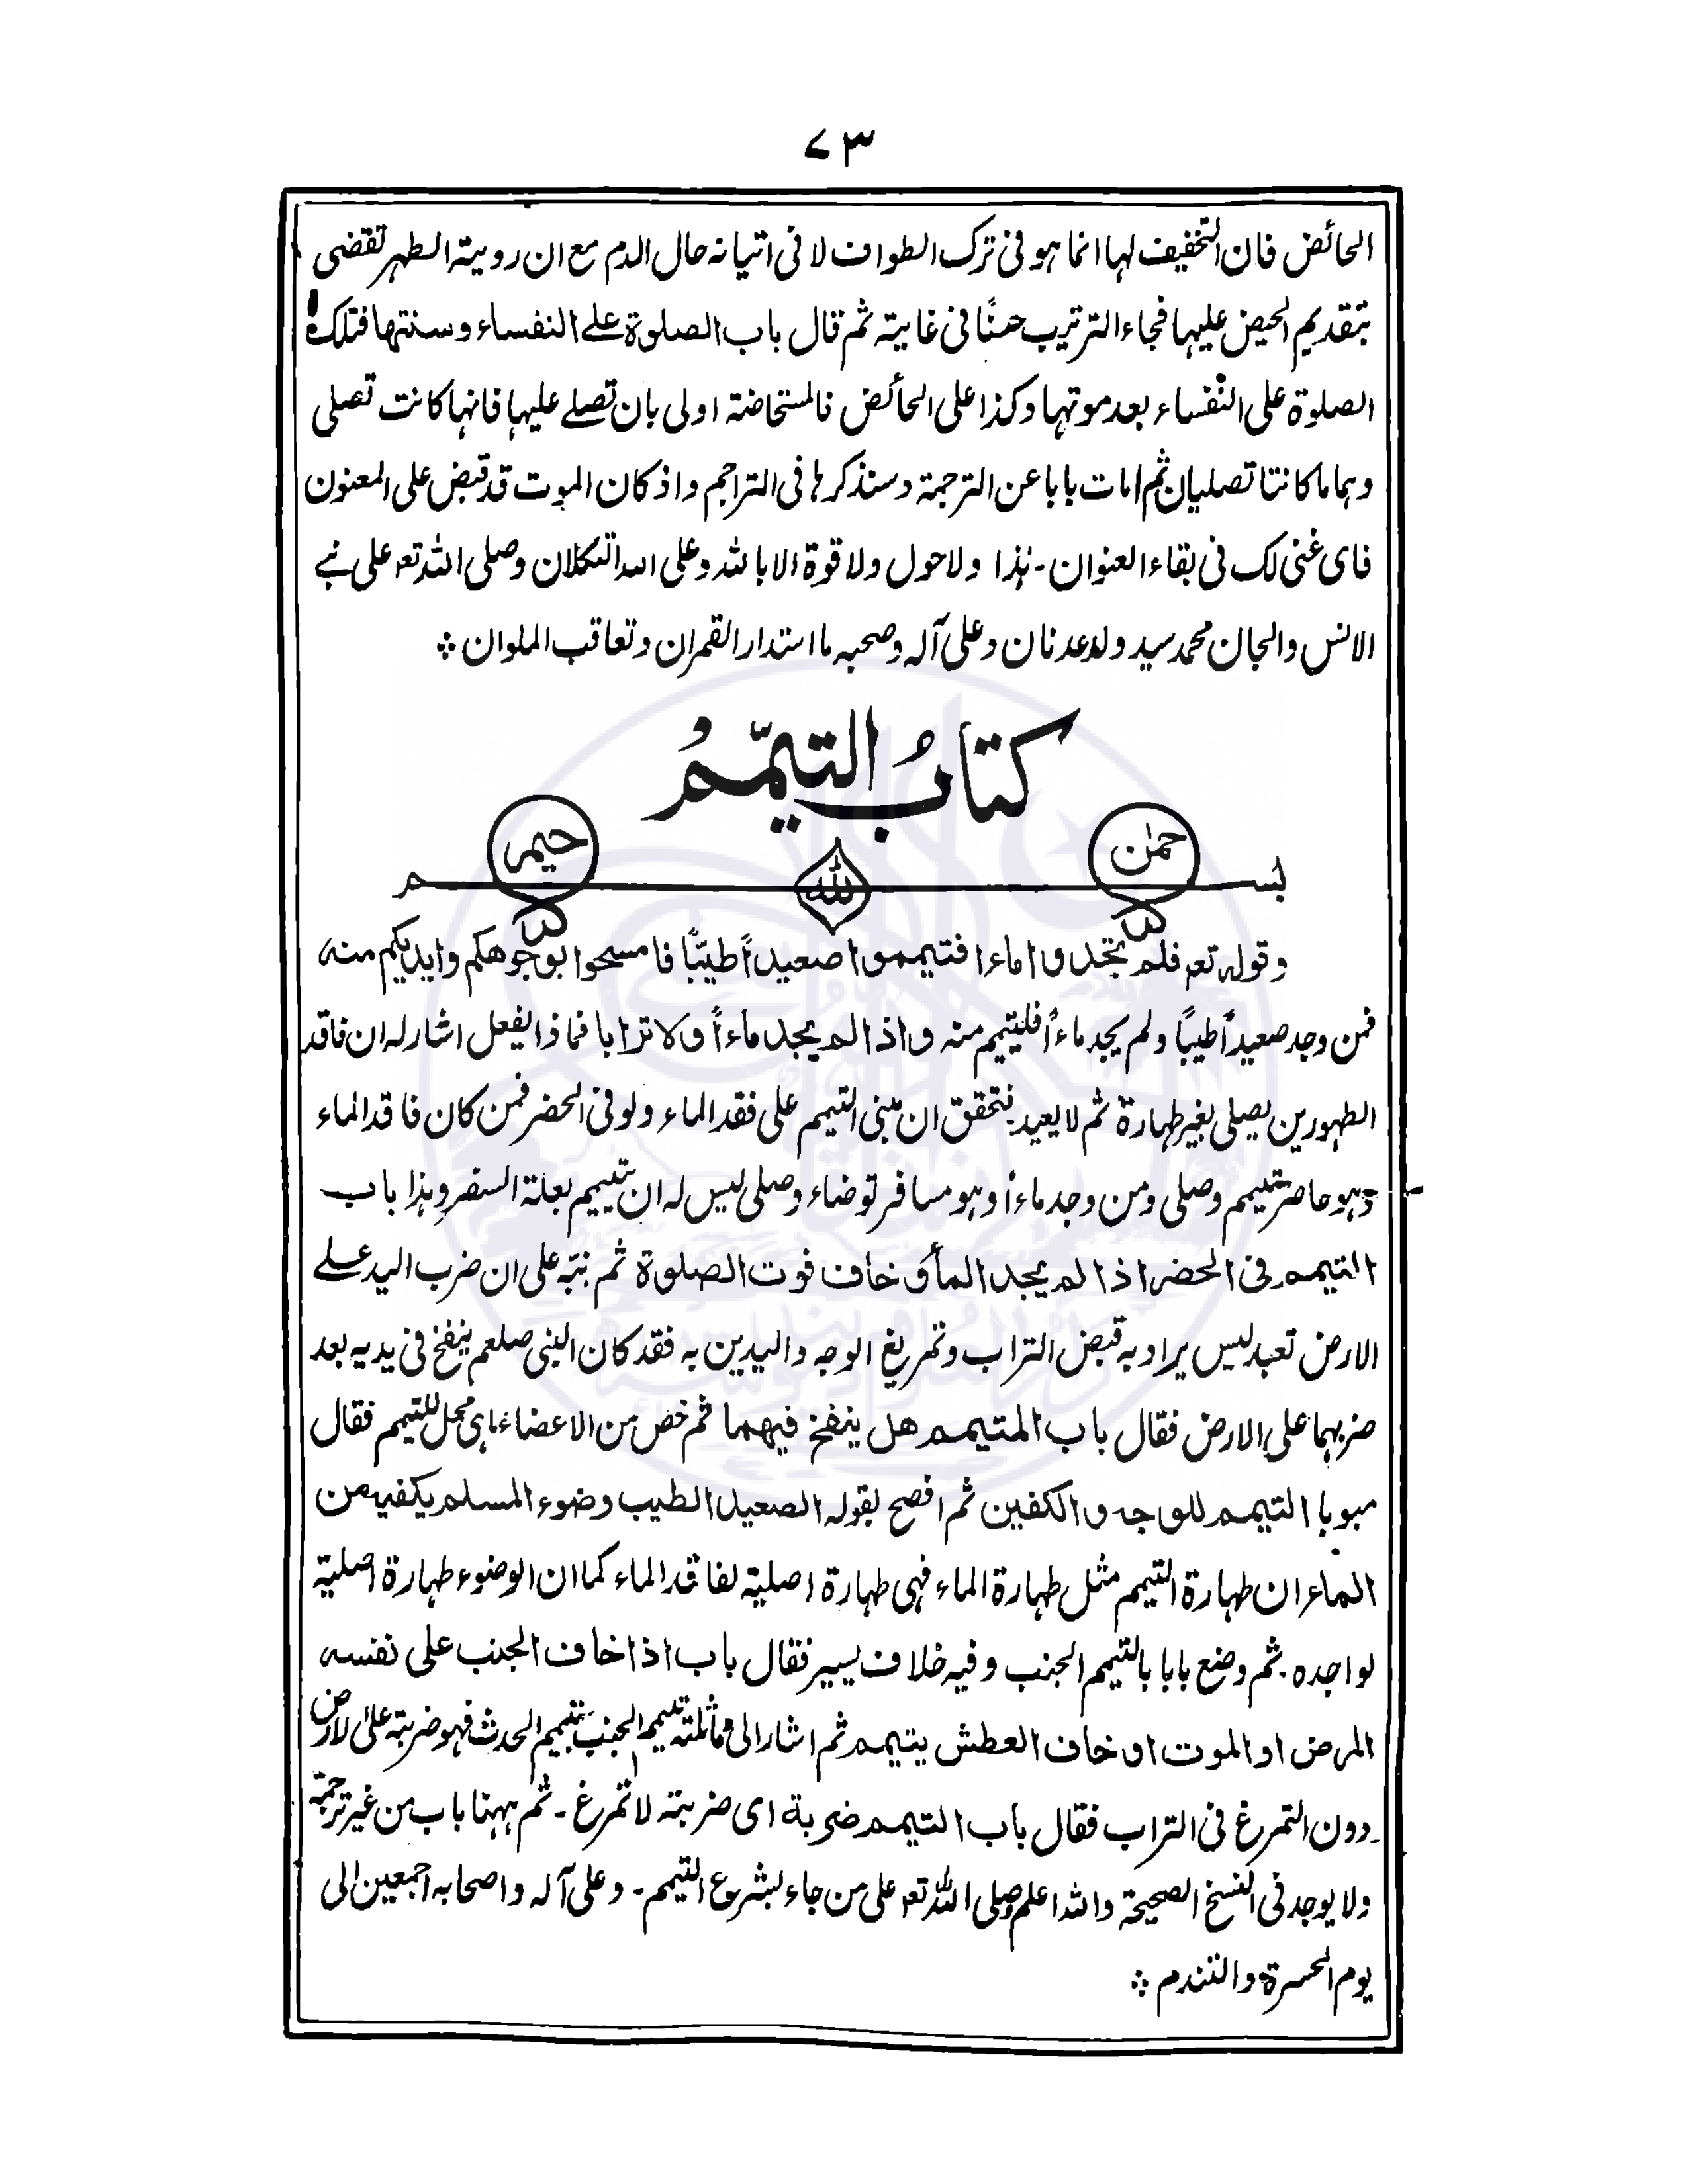 ٧٣
الحائض فان التخفيف لها انما هو في ترك الطواف لا في اتيانه حال الدم مع ان روية الطهر تقضى
بتقديم الحيض عليها فجاء الترتيب حسنًا في غاية ثم قال باب الصلوة على النفساء وسنتها فتلك
الصلوة على النفساء بعد موتها وكذا على الحائض فالمستحاضة اولى بان تصلے عليها فانها كانت تصلى
وهما ما كانتا تصليان ثم امات بابا عن الترجمة وسنذكرها في التراجم واذ كان الموت قد قبض على المعنون
فاى غنى لك في بقاء العنوان ـ هذا ولا حول ولا قوة الا بالله وعلى الله التكلان وصلى الله تعه على نبے
الانس والجان محمد سيد ولد عدنان وعلى آله وصحبه ما استدار القمران وتعاقب الملوان
كتابُ التيمّمُ
بسم الله الرحمٰن الرحيم
وقوله تعه فلم تجدوا ماءا فتيمموا صعيداً طيبًا فامسحوا بوجوهكم وايديكم منه
فمن وجد صعيداً طيبًا ولم يجد ماءاً فليتيمم منه واذا لم يجد ماءاً ولا ترابا فماذا يفعل اشار له ان فاقد
الطهورين يصلى بغير طهارة ثم لا يعيد فتحقق ان مبنى التيمم على فقد الماء ولو في الحضر فمن كان فاقد الماء
وهو حاضر تيمم وصلى ومن وجد ماءاً وهو مسافر توضاء وصلى ليس له ان يتيمم بعلة السفر وهذا باب
التيمم في الحضر اذا لم يجد الماء و خاف فوت الصلوة ثم نبّه على ان ضرب اليد علے
الارض تعبد ليس يراد به قبض التراب وتمريغ الوجه واليدين به فقد كان النبى صلعم ينفخ في يديه بعد
ضربهما على الارض فقال باب المتيمم هل ينفخ فيهما ثم خص من الاعضاء ما هى محل للتيمم فقال
مبوبا التيمم للوجه والكفين ثم افصح بقوله الصعيد الطيب وضوء المسلم يكفيه من
الماء ان طهارة التيمم مثل طهارة الماء فهى طهارة اصلية لفاقد الماء كما ان الوضوء طهارة اصلية
لواجده ـ ثم وضع بابا بالتيمم الجنب وفيه خلاف يسير فقال باب اذا خاف الجنب على نفسه
المرض او الموت او خاف العطش يتيمم ثم اشار الى مماثلة تيمم الجنب بتيمم المحدث فهو ضربة على الارض
دون التمرغ في التراب فقال باب التيمم ضربة اى ضربة لا تمرغ ـ ثم ههنا باب من غير ترجمة
ولا يوجد في النسخ الصحيحة والله اعلم وصلى الله تعه على من جاء بشروع التيمم ـ وعلى آله واصحابه اجمعين الى
يوم الحسرة والتندم